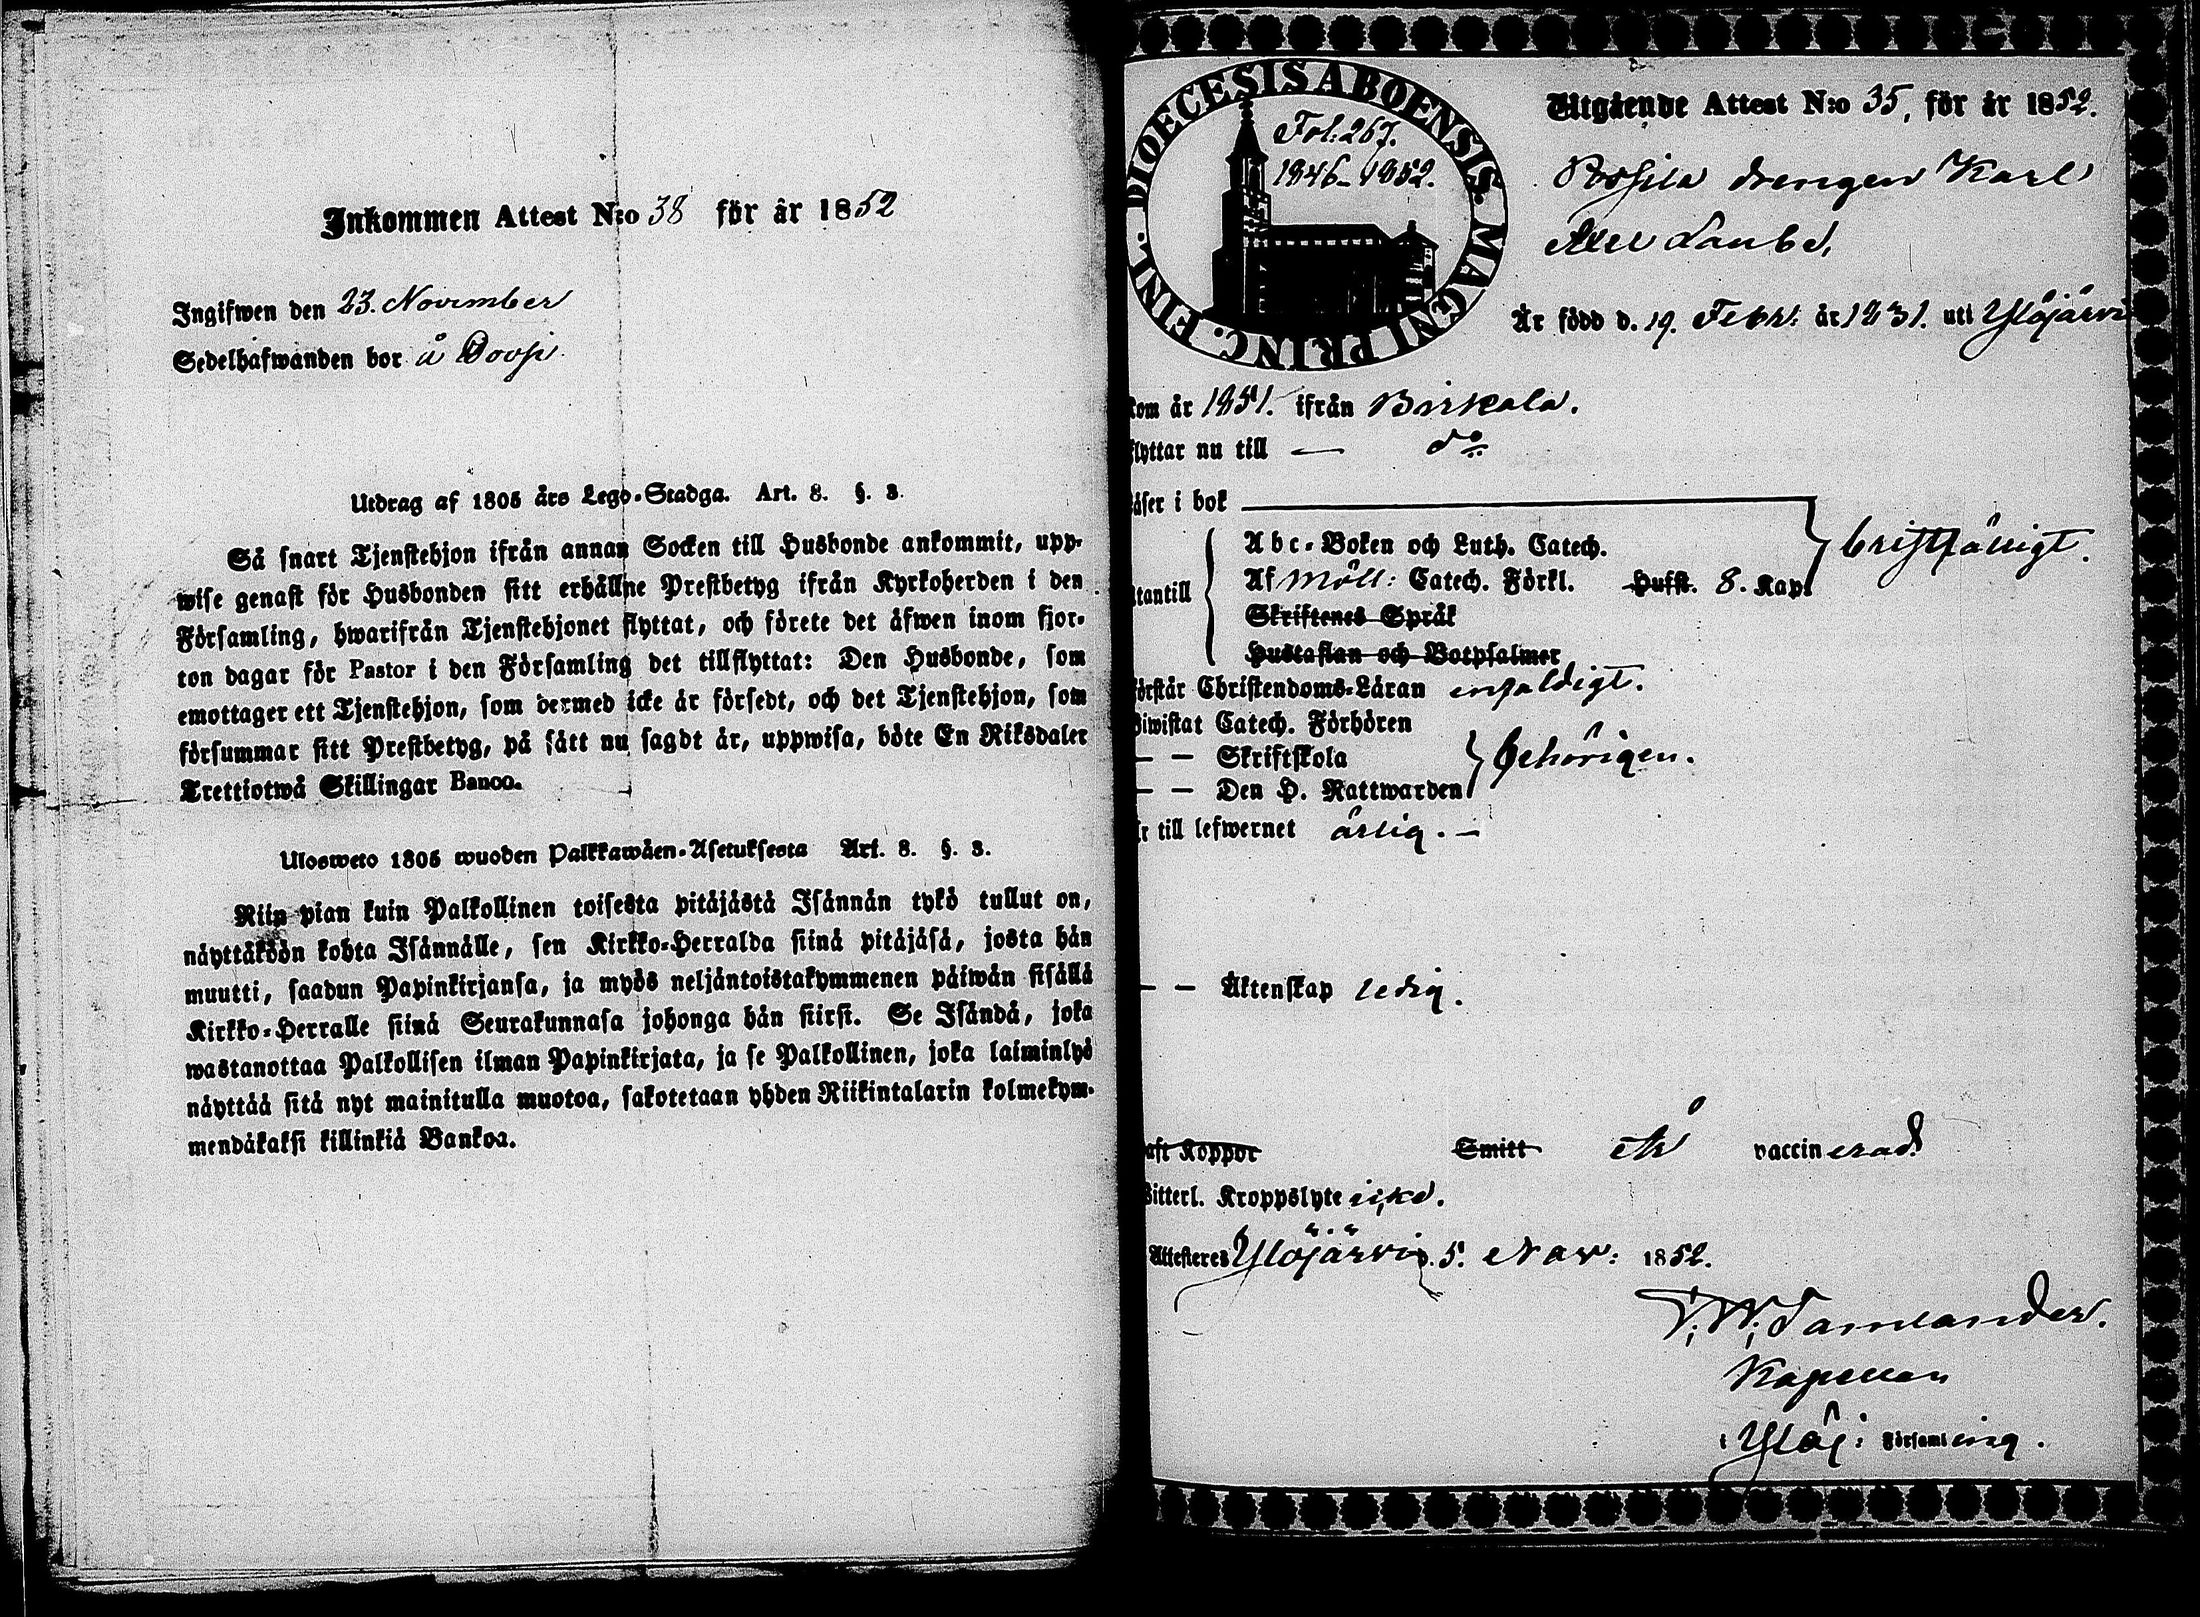 Inkommen Attest N:o 38 för år 1852
Ingifwen den 23. November
Sedelhafwanden bor å
Utdrag af 1805 års Lego-Stadga. Art. 8. §. 3.
Så snart Tjenstehjon ifrån annan Socken till Husbonde ankommit, upp-
wise genast för Husbonden sitt erhållne Prestbetyg ifrån Kyrkoherden i den
Församling, hwarifrån Tjenstehjonet flyttat, och förete det äfwen inom fjor-
ton dagar för Pastor i den Församling det tillflyttat: Den Husbonde, som
emottager ett Tjenstehjon, som dermed icke är försedt, och det Tjenstehjon, som
försummar sitt Prestbetyg, på sätt nu sagdt är, uppwisa, böte En Riksdaler
Trettiotwå Skillingar Banco.
Ulosweto 1805 wuoden Palkkawäen-Asetuksesta Art. 8. §. 3.
Niin pian kuin Palkollinen toisesta pitäjästä Isännän tykö tullut on,
näyttäköön kohta Isännälle, sen Kirkko-Herralda siinä pitäjäsä, josta hän
muutti, saadun Papinkirjansa, ja myös neljäntoistakymmenen päiwän sisällä
Kirkko-Herralle siinä Seurakunnasa johonga hän siirsi. Se Isändä, joka
wastanottaa Palkollisen ilman Papinkirjata, ja se Palkollinen, joka laiminlyö
näyttää sitä nyt mainitulla muotoa, sakotetaan yhden Riikintalarin kolmekym-
mendäkaksi killinkiä Bankoa.
DIOECESIS ABOENSIS. MAGNI PRINC. FINL.
Fol: 267.
1846-1852.
Utgående Attest N:o 35, för år 1852.
drengen Karl
Är född d. 19. Febr: år 1831. uti Ylöjärvi
kom år 1851. ifrån Birkala.
flyttar nu till — d:o
läser i bok
Abc-Boken och Luth. Catech.
utantill Af Möll: Catech. Förkl. Husst. 8. Kap.
Skriftenes Språk
Hustaflan och Botpsalmer
bristfälligt.
förstår Christendoms-Läran enfaldigt.
Biwistat Catech. Förhören
— — Skriftskola
— — Den H. Nattwarden
behörigen.
är till lefwernet ärlig. —
— — Äktenskap ledig.
haft Koppor Smitt Är vaccinerad.
Witterl. Kroppslyte icke.
Attesteres Ylöjärvi d. 5. Nov: 1852.
Kapellan
i Ylöj: Församling.